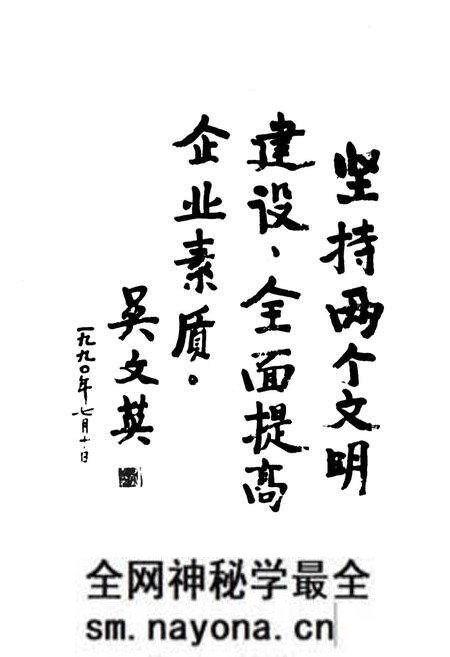 坚持两个文明
建设、全面提高
企业素质。
吴文英
一九九〇年七月十日
全网神秘学最全
sm.nayona.cn